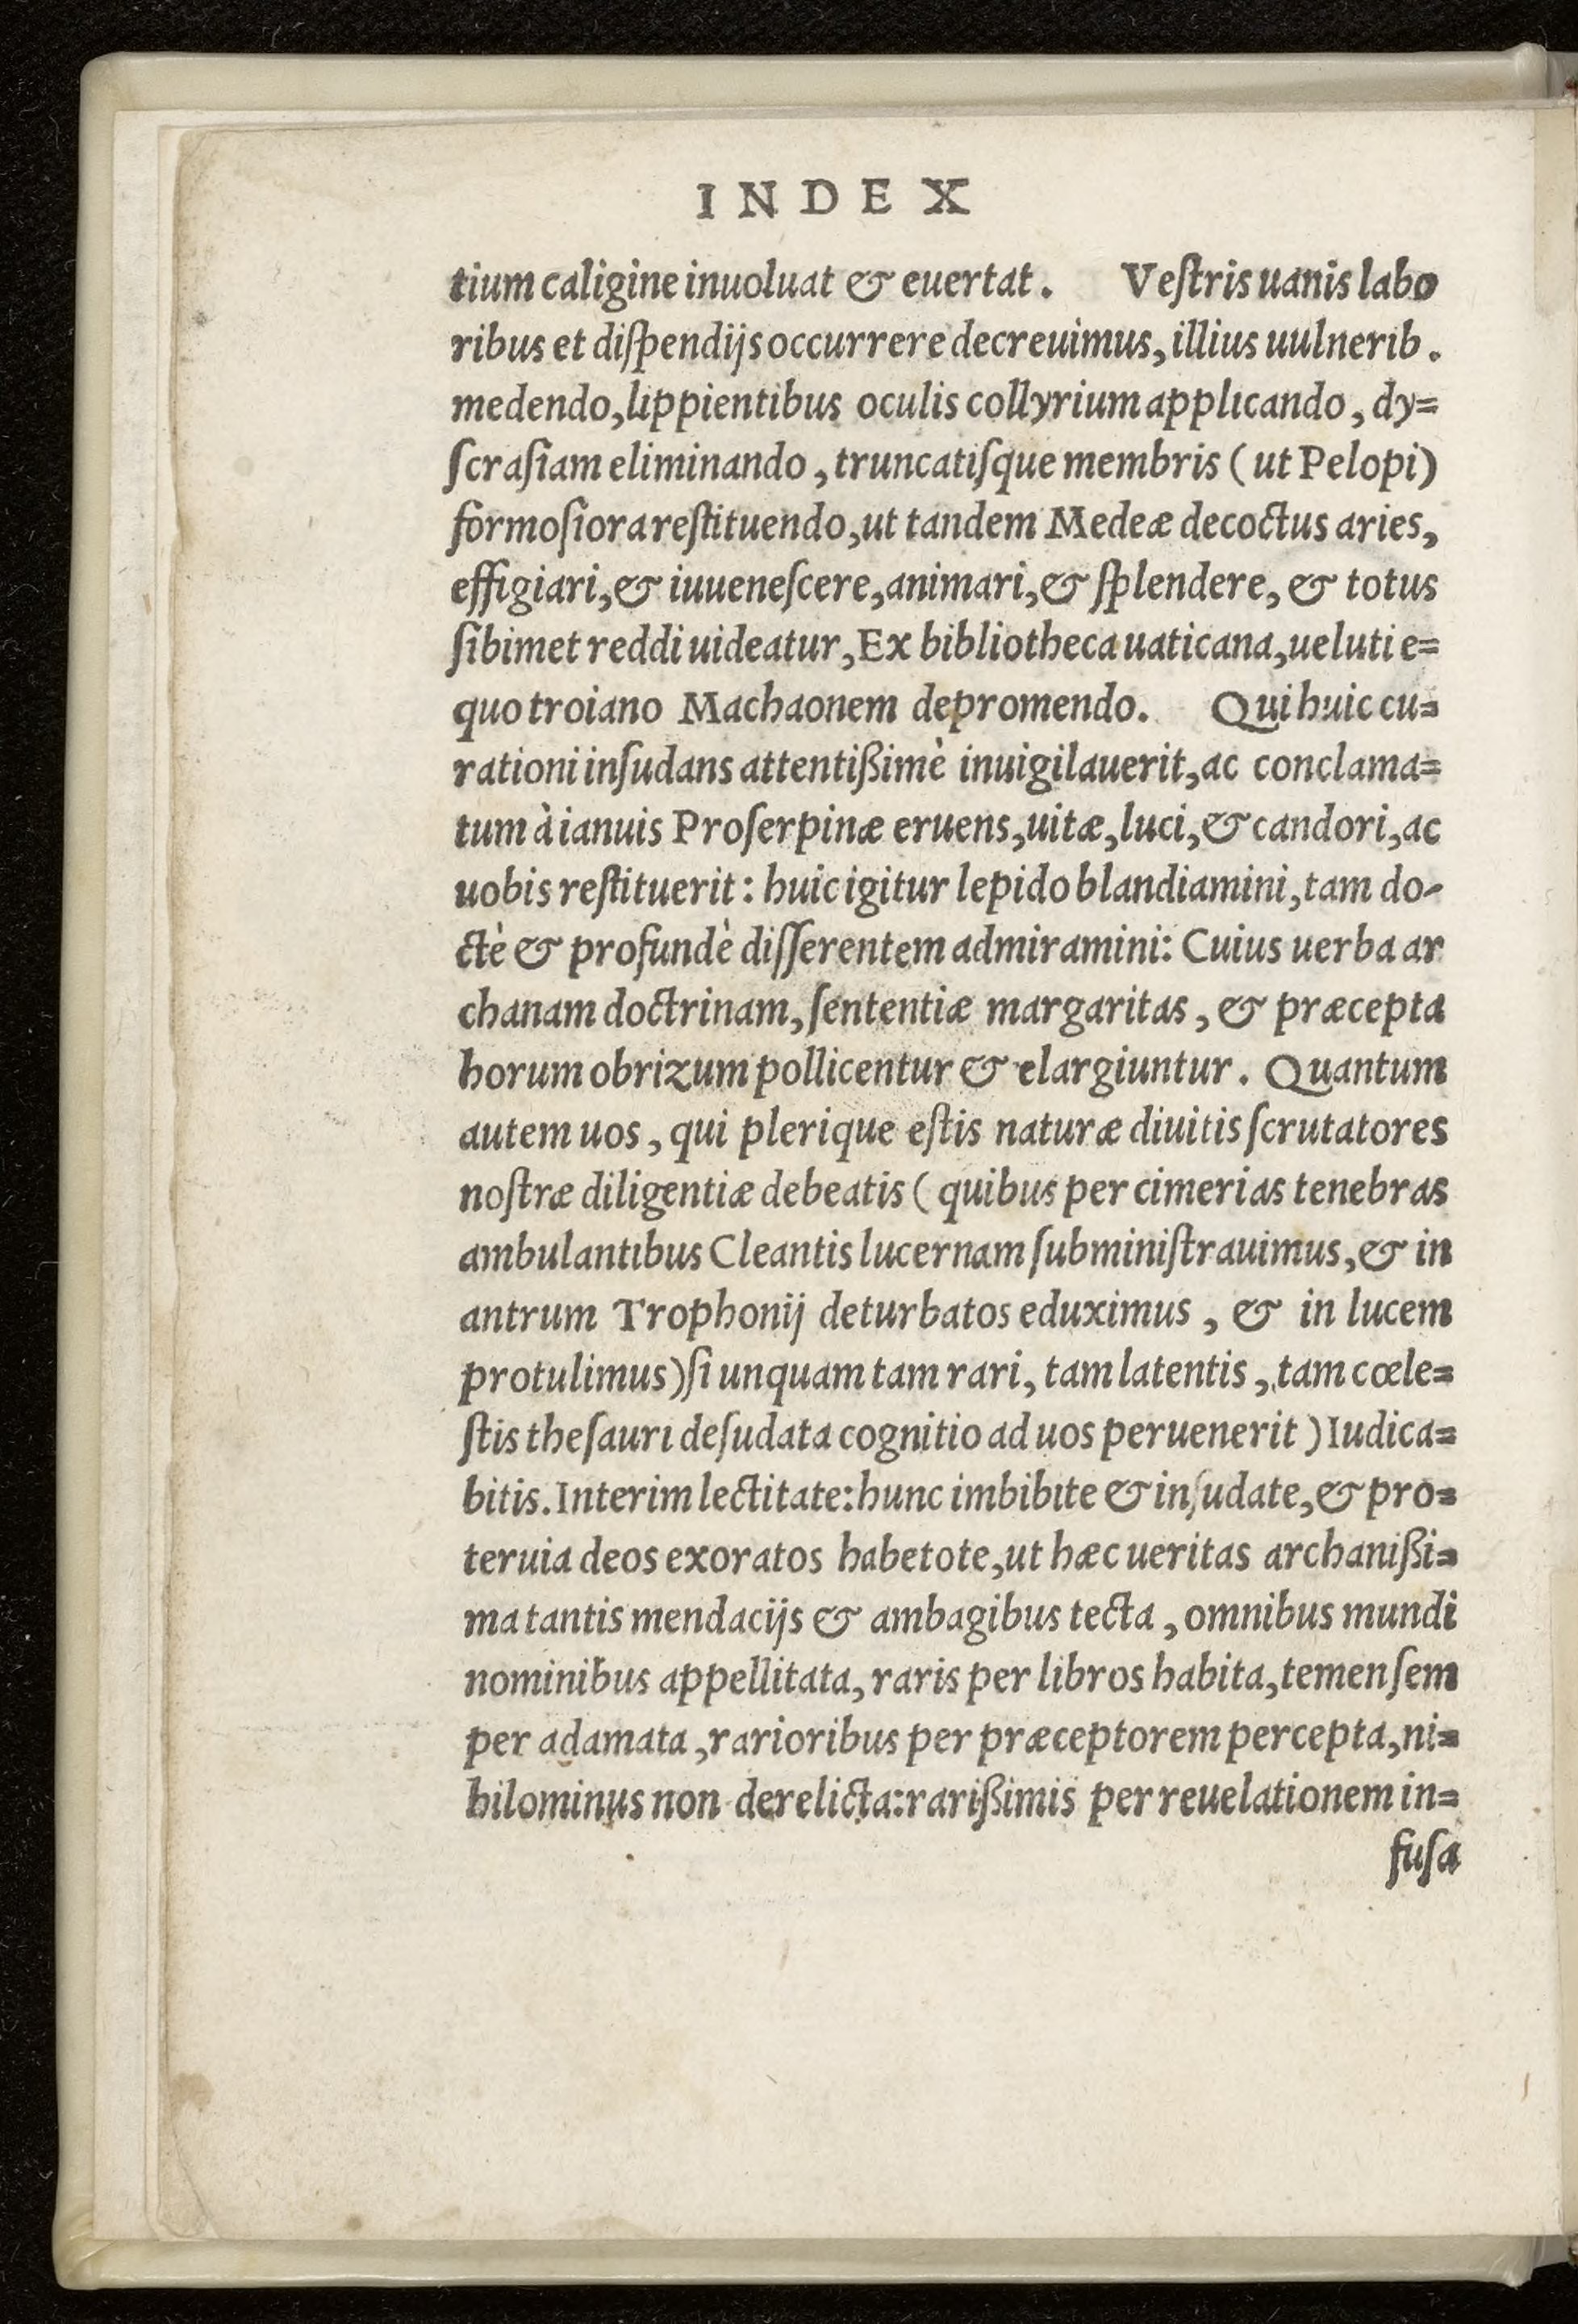 INDEX
tium caligine inuoluat & euertat. Veſtris uanis labo
ribus et diſpendijs occurrere decreuimus, illius uulnerib.
medendo, lippientibus oculis collyrium applicando, dy=
ſcraſiam eliminando, truncatiſque membris ( ut Pelopi)
formoſiora reſtituendo, ut tandem Medeæ decoctus aries,
effigiari, & iuueneſcere, animari, & ſplendere, & totus
ſibimet reddi uideatur, Ex bibliotheca uaticana, ueluti e=
quo troiano Machaonem depromendo. Qui huic cu=
rationi inſudans attentißimè inuigilauerit, ac conclama=
tum à ianuis Proſerpinæ eruens, uitæ, luci, & candori, ac
uobis reſtituerit: huic igitur lepido blandiamini, tam do-
ctè & profundè diſſerentem admiramini: Cuius uerba ar
chanam doctrinam, ſententiæ margaritas, & præcepta
horum obrizum pollicentur & elargiuntur. Quantum
autem uos, qui plerique eſtis naturæ diuitis ſcrutatores
noſtræ diligentiæ debeatis ( quibus per cimerias tenebras
ambulantibus Cleantis lucernam ſubminiſtrauimus, & in
antrum Trophonij deturbatos eduximus, & in lucem
protulimus) ſi unquam tam rari, tam latentis, tam cœle=
ſtis theſauri deſudata cognitio ad uos peruenerit ) Iudica=
bitis. Interim lectitate: hunc imbibite & inſudate, & pro=
teruia deos exoratos habetote, ut hæc ueritas archanißi=
ma tantis mendacijs & ambagibus tecta, omnibus mundi
nominibus appellitata, raris per libros habita, temen ſem
per adamata, rarioribus per præceptorem percepta, ni=
hilominus non derelicta: rarißimis per reuelationem in=
fuſa